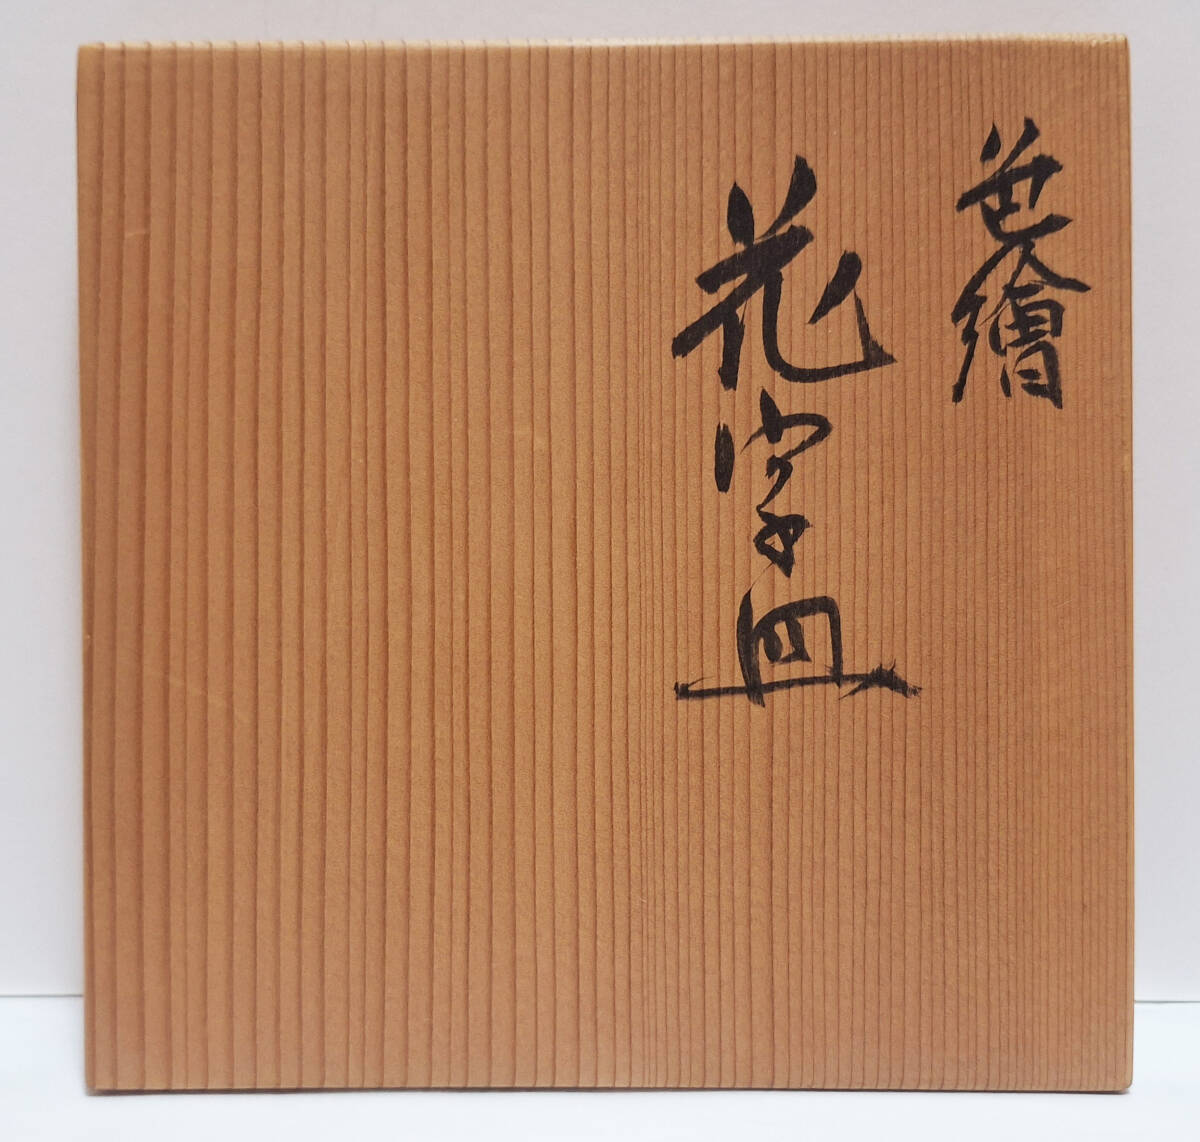 色繪
花字皿